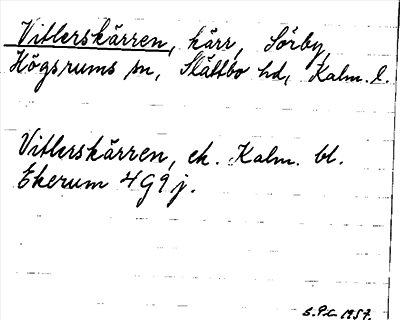 Vitlerskärren, kärr, Sörby,
Högsrums sn, Slättbo hd, Kalm. l.
Vitlerskärren, ek. Kalm. bl.
Ekerum 4G9j.
S.P.L. 1957.